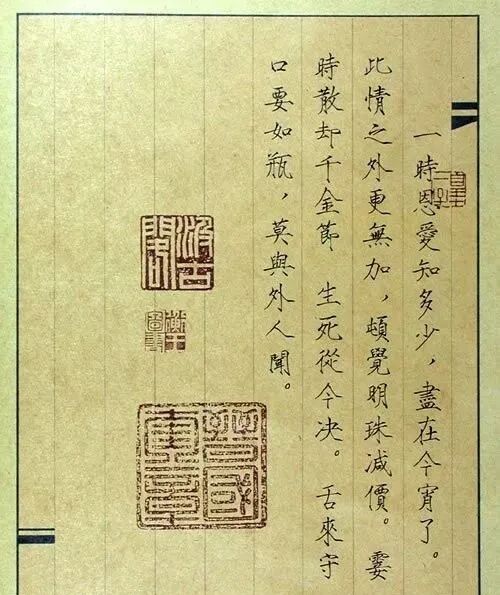 一時恩愛知多少，盡在今宵了。
此情之外更無加，頓覺明珠減價。霎
時散却千金節 生死從今决。舌來守
口要如瓶，莫與外人聞。
晉國
奎章